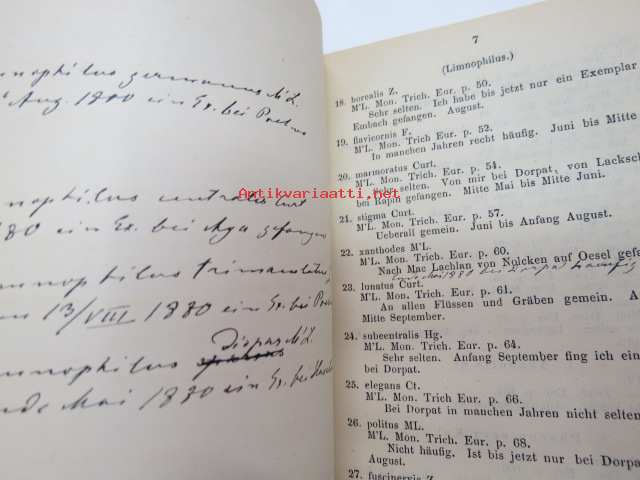 germanus M'L.
Aug. 1880 ein Ex. bei
centralis Curt
1880 ein Ex. bei gefangen
13/VIII 1880 ein Ex. bei
Dispar M'L.
Mai 1880 ein Ex. bei
Antikvariaatti.net
7
(Limnophilus.)
18. borealis Z.
M'L. Mon. Trich. Eur. p. 50.
Sehr selten. Ich habe bis jetzt nur ein Exemplar
Embach gefangen. August.
19. flavicornis F.
M'L. Mon. Trich Eur. p. 52.
In manchen Jahren recht häufig. Juni bis Mitte
20. marmoratus Curt.
M'L. Mon. Trich. Eur. p. 54.
selten. Von mir bei Dorpat, von Lacksch
bei Rapin gefangen. Mitte Mai bis Mitte Juni.
21. stigma Curt.
M'L. Mon. Trich. Eur. p. 57.
Ueberall gemein. Juni bis Anfang August.
22. xanthodes M'L.
M'L. Mon. Trich. Eur. p. 60.
Nach Mac Lachlan von Nolcken auf Oesel gefa
Mai 1880 bei Dorpat
23. lunatus Curt.
M'L. Mon. Trich. Eur. p. 61.
An allen Flüssen und Gräben gemein. A
Mitte September.
24. subcentralis Hg.
M'L. Mon. Trich. Eur. p. 64.
Sehr selten. Anfang September fing ich ein
bei Dorpat.
25. elegans Ct.
M'L. Mon. Trich Eur. p. 66.
Bei Dorpat in manchen Jahren nicht selten
26. politus ML.
M'L. Mon. Trich. Eur. p. 68.
Nicht häufig. Ist bis jetzt nur bei Dorpa
August.
27. fuscinervis Z.